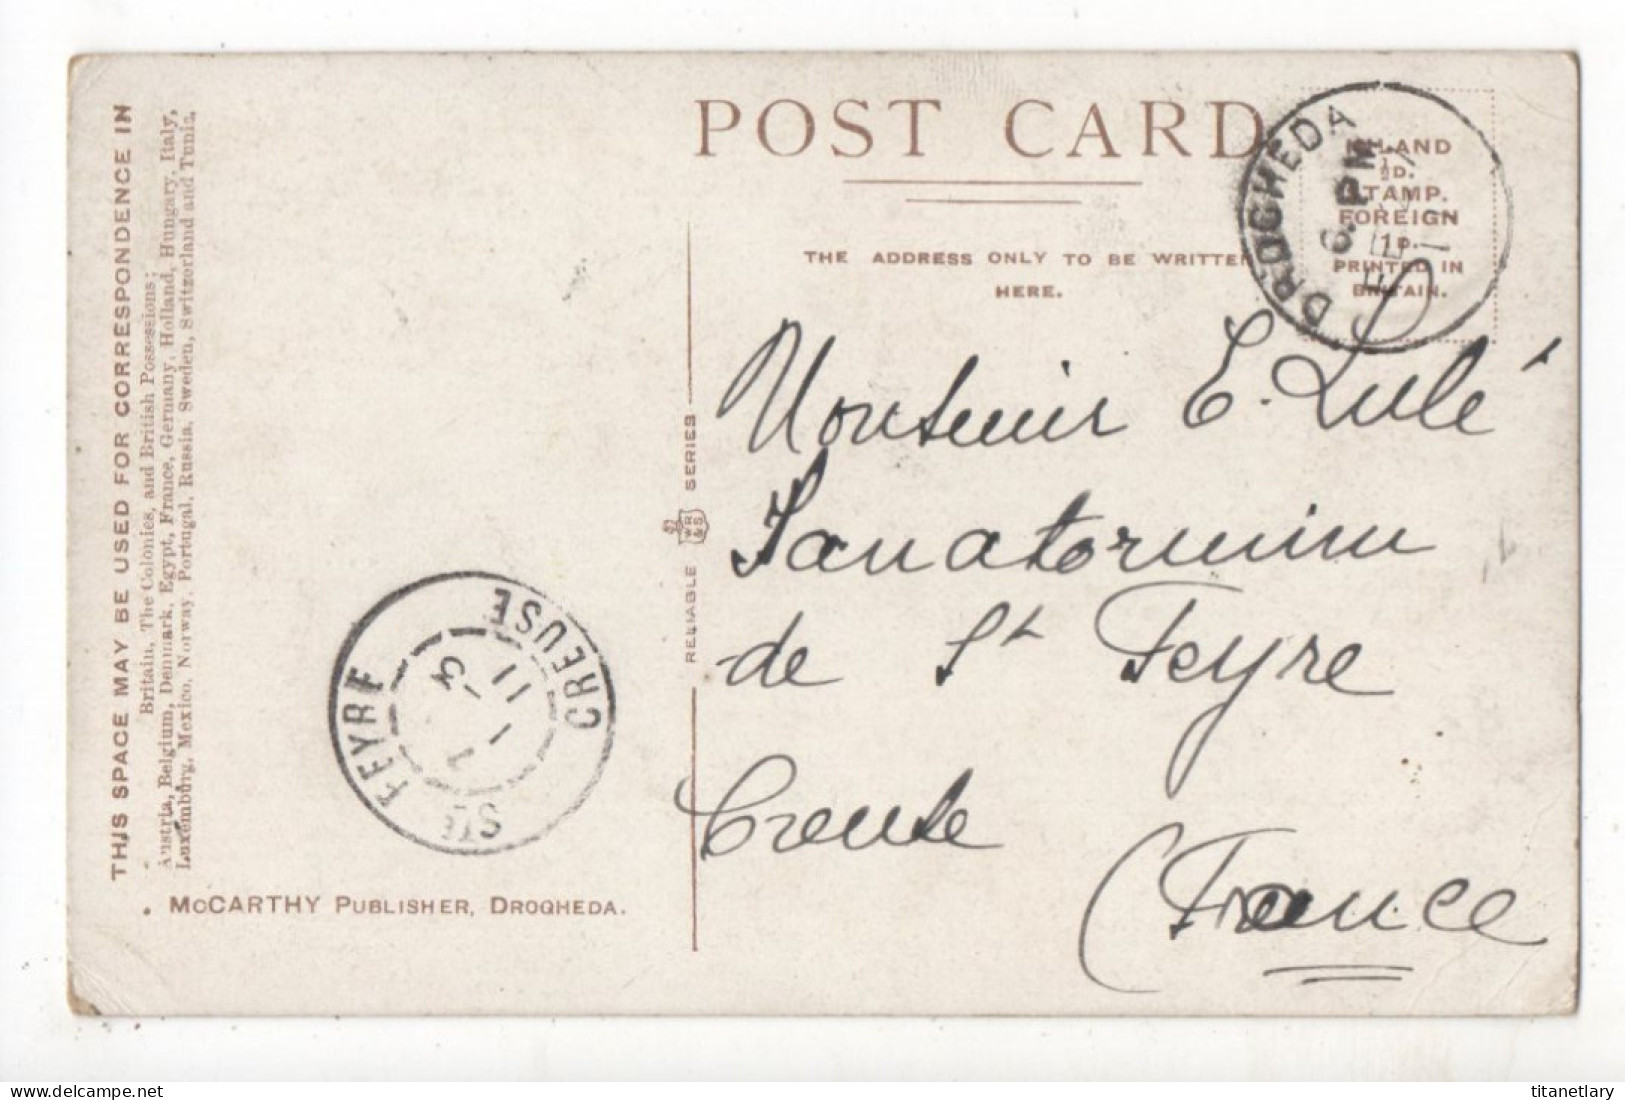 POST CARD
THE ADDRESS ONLY TO BE WRITTEN
HERE.
INLAND
½D.
STAMP.
FOREIGN
1D.
PRINTED IN
BRITAIN.
DROGHEDA
6 PM
Monsieur E. Lulé
Sanatorium
de St Feyre
Creuse
(France
THIS SPACE MAY BE USED FOR CORRESPONDENCE IN
Britain, The Colonies, and British Possessions;
Austria, Belgium, Denmark, Egypt, France, Germany, Holland, Hungary, Italy,
Luxemburg, Mexico, Norway, Portugal, Russia, Sweden, Switzerland and Tunis.
RELIABLE WR&S SERIES
STE FEYRE
CREUSE
1 - 3
11
McCARTHY PUBLISHER, DROGHEDA.
delcampe.net
titanetlary